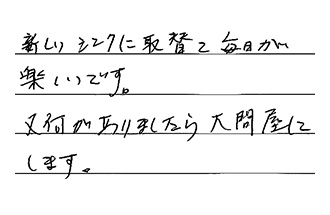 新しいシンクに取替て毎日が
楽しいです。
又何がありましたら大問屋に
します。